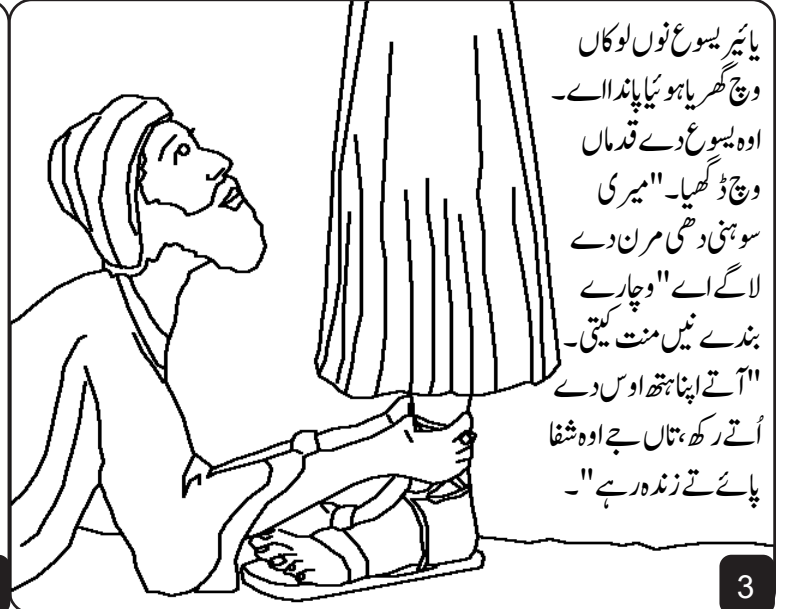 یائیر یسوع نوں لوکاں
وچ گھریاہوئیا پاندااے۔
اوہ یسوع دے قدماں
وچ ڈگھیا۔"میری
سوہنی دھی مرن دے
لاگے اے"وچارے
بندے نیں منت کیتی۔
"آتے اپنا ہتھ اوس دے
اُتے رکھ، تاں جے اوہ شفا
پائے تے زندہ رہے"۔
3